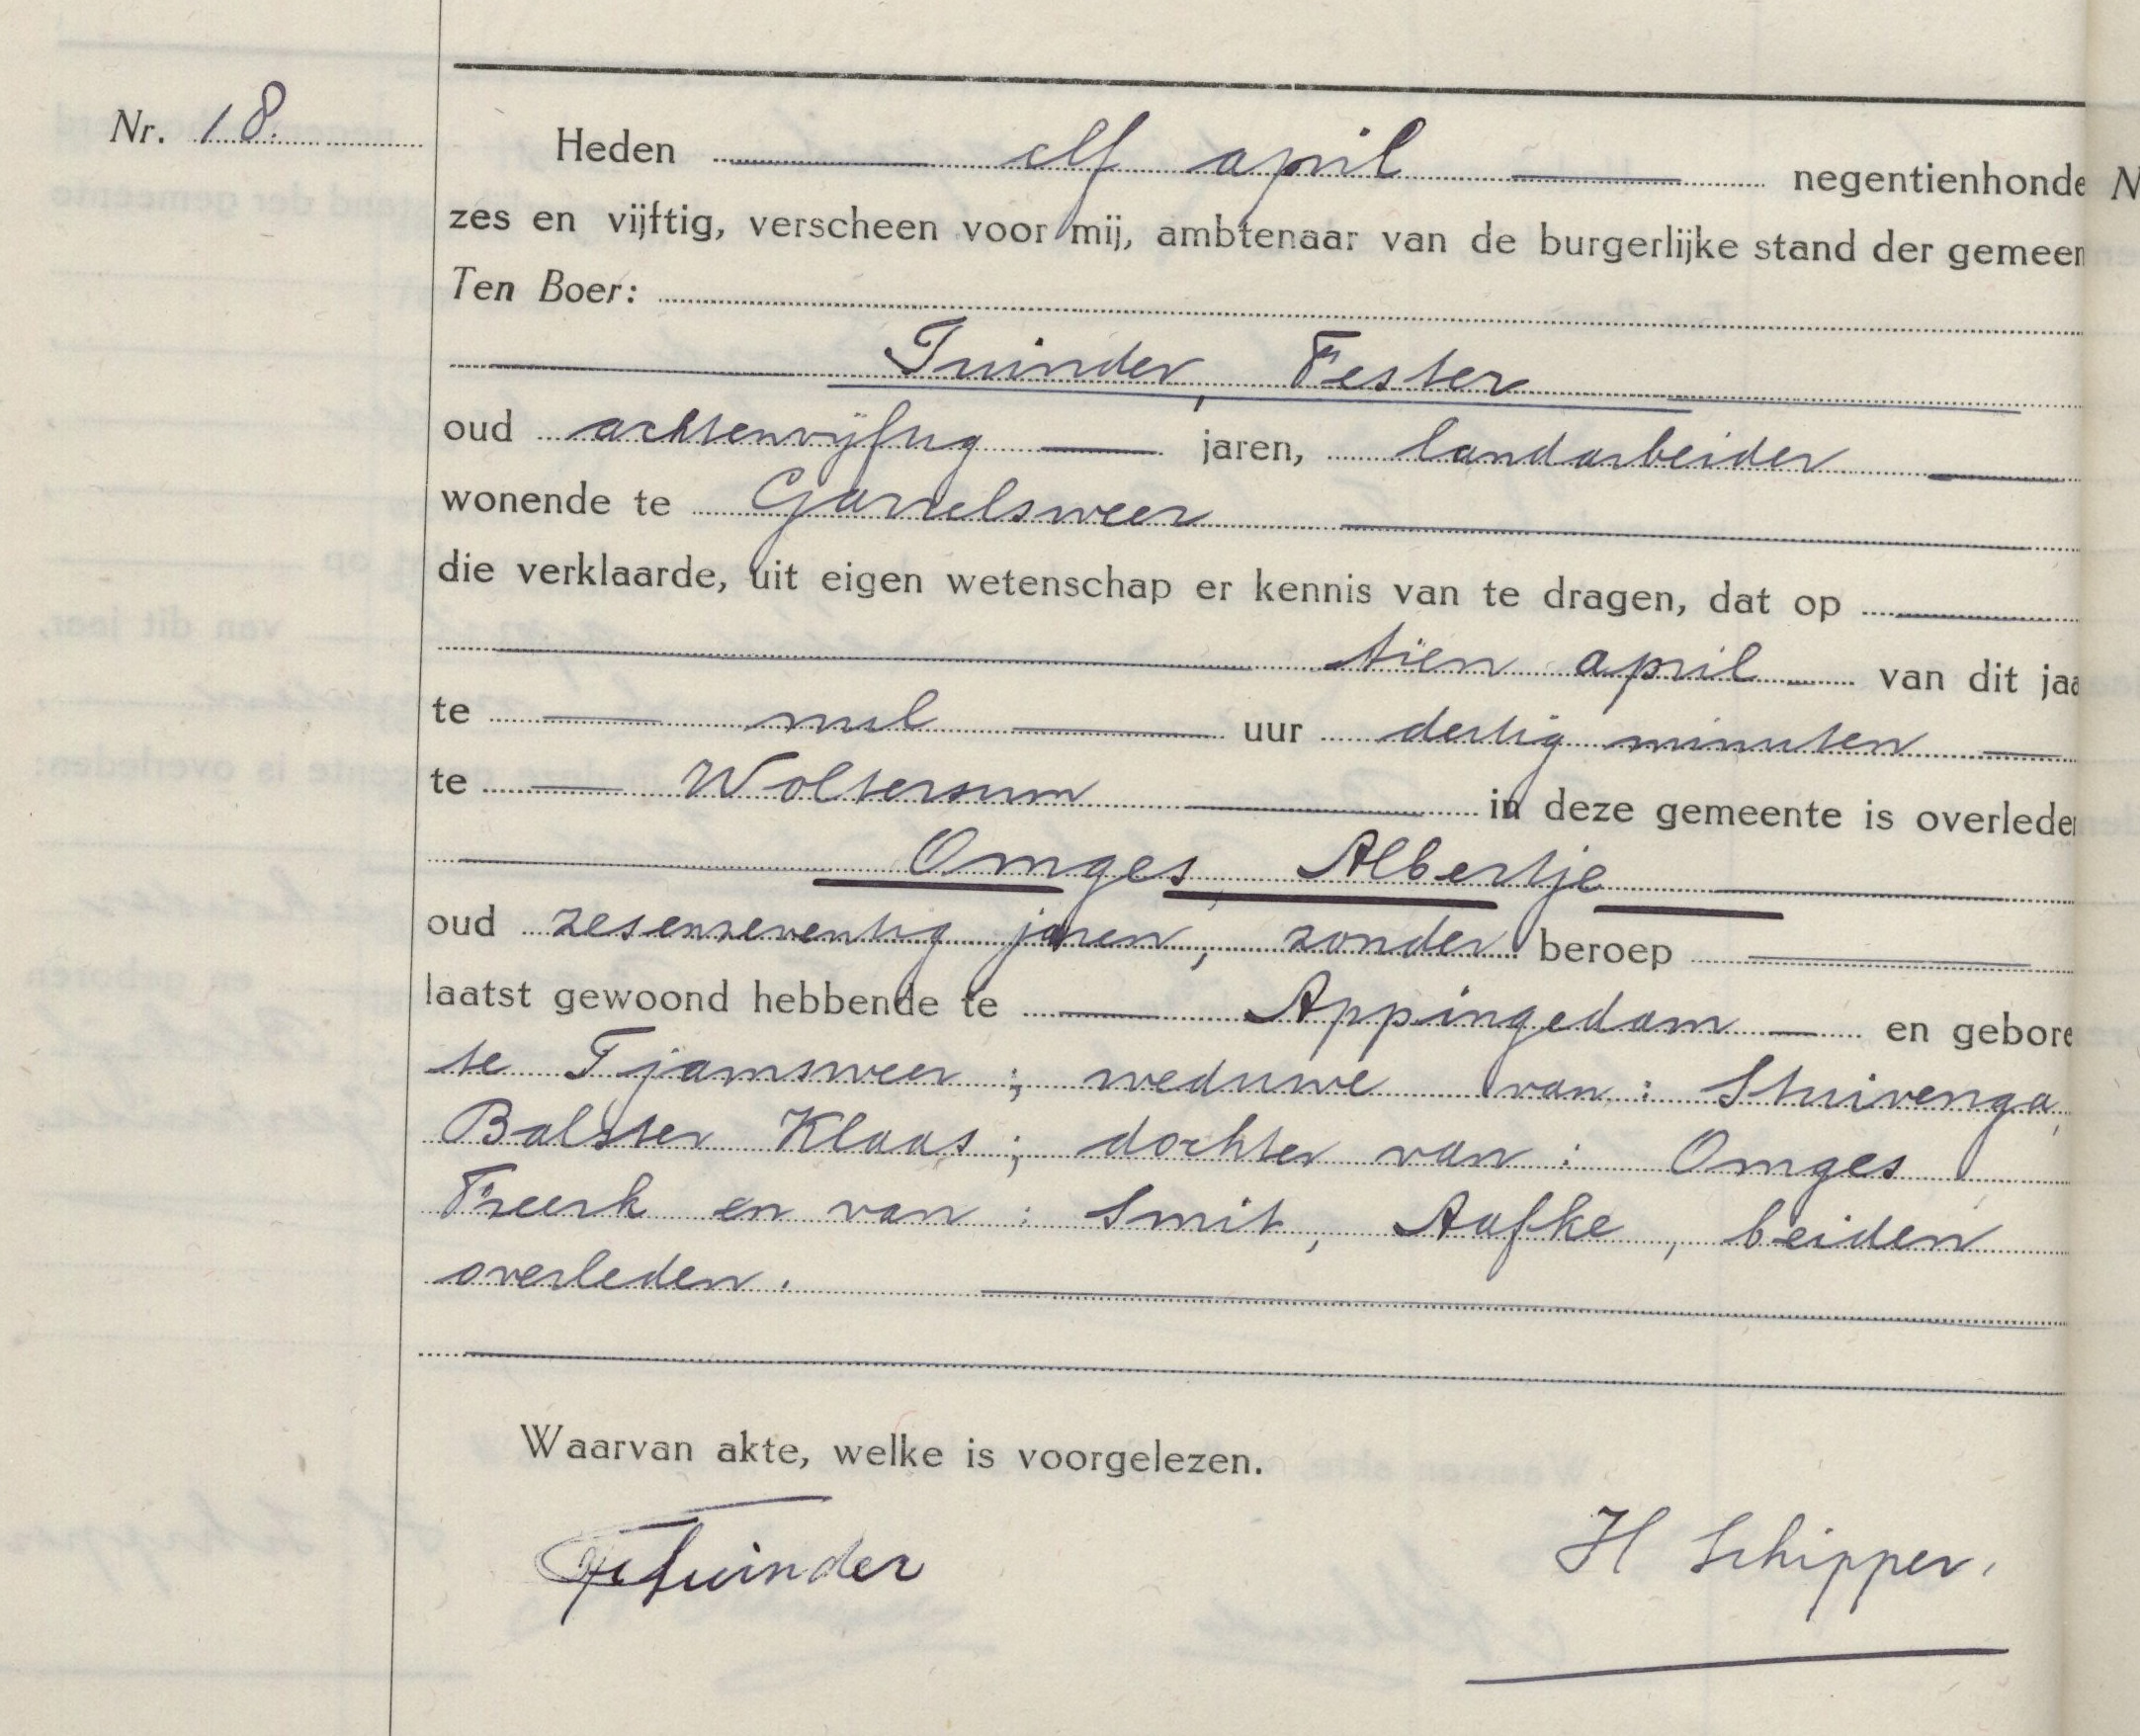 Nr. 18.
Heden elf april negentienhonde
zes en vijftig, verscheen voor mij, ambtenaar van de burgerlijke stand der gemeen
Ten Boer:
Tuinder, Fester
oud achtenvijftig jaren, landarbeider
wonende te Garrelsweer
die verklaarde, uit eigen wetenschap er kennis van te dragen, dat op
tien april van dit jaa
te nul uur dertig minuten
te Woltersum in deze gemeente is overleden
Omges, Albertje
oud zesenzeventig jaren, zonder beroep
laatst gewoond hebbende te Appingedam en gebore
te Tjamsweer; weduwe van: Stuivenga,
Balster Klaas; dochter van: Omges
Freerk en van: Smit, Aafke, beiden
overleden.
Waarvan akte, welke is voorgelezen.
F Tuinder
H Schipper.